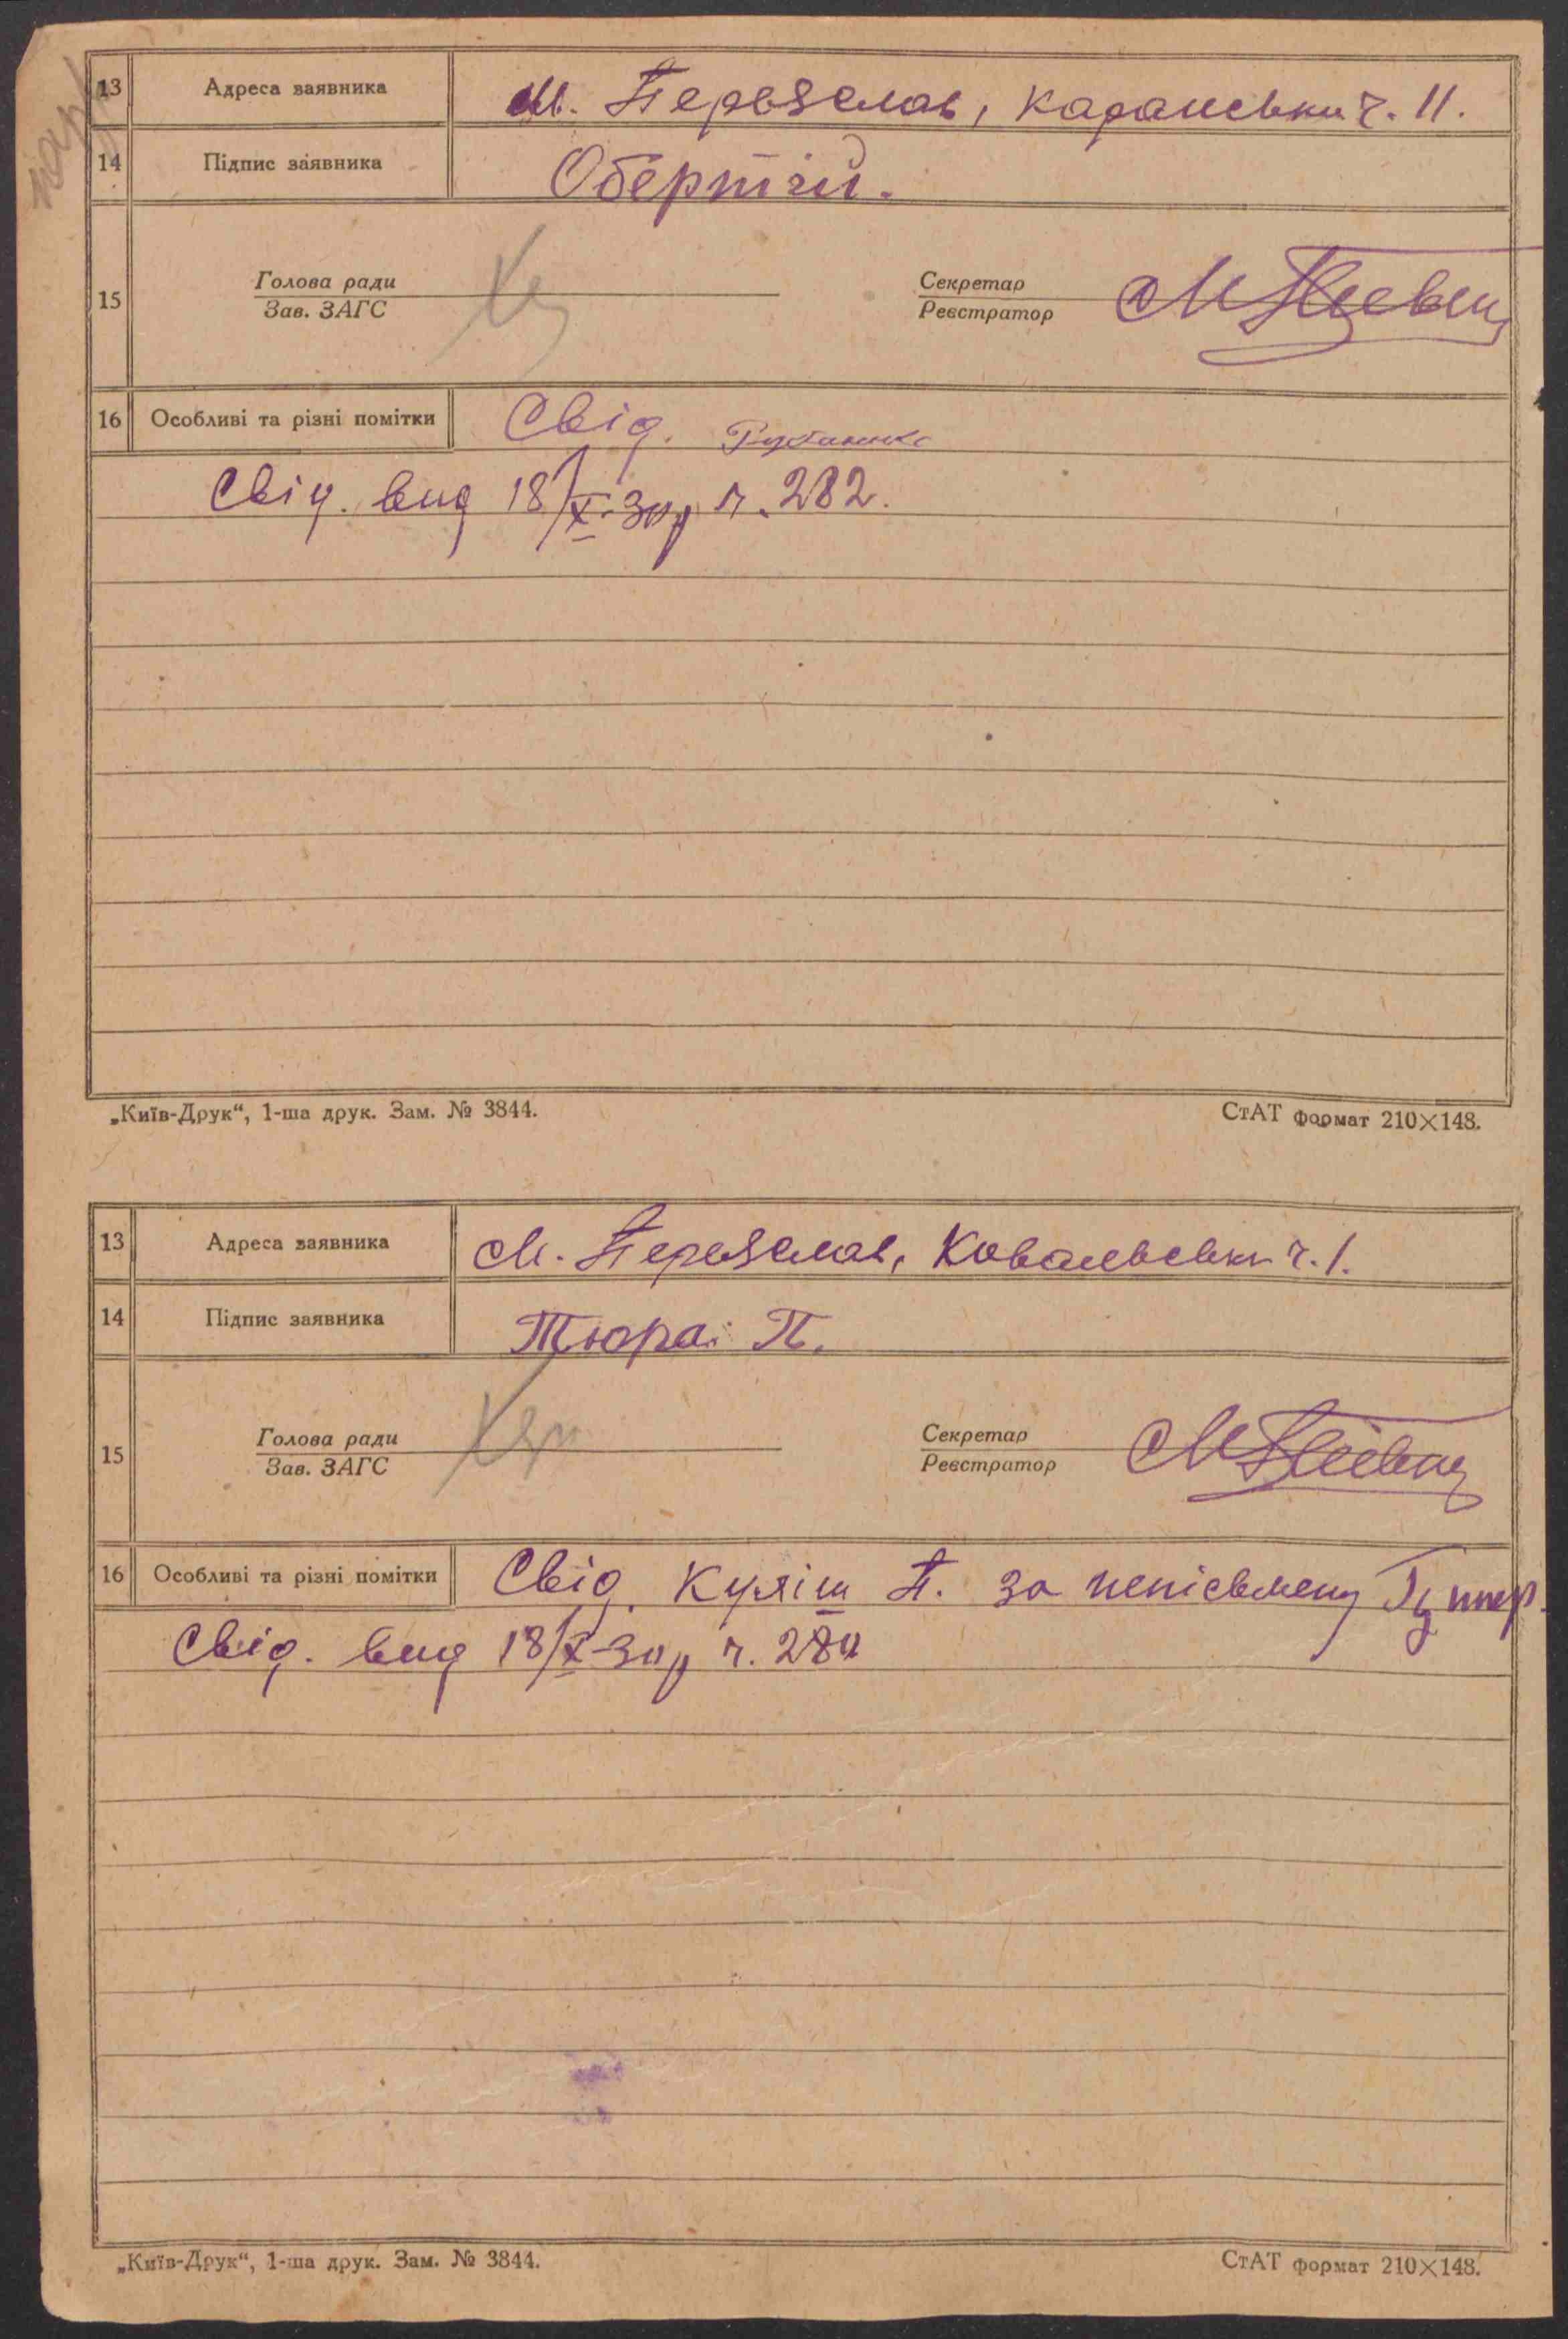 13 Адреса заявника м. Переяслав, Каранська ч. 11.
14 Підпис заявника
15 Голова ради Секретар
Зав. ЗАГС Реєстратор
16 Особливі та різні помітки Свід. Рубаненко
Свід. вид 18/X-30 р ч. 282.
„Київ-Друк“, 1-ша друк. Зам. № 3844. СтАТ формат 210×148.
13 Адреса заявника м. Переяслав, Ковалевськ ч. 1.
14 Підпис заявника Тюра П.
15 Голова ради Секретар
Зав. ЗАГС Реєстратор
16 Особливі та різні помітки Свід. Куліш П. за неписьмену
Свід. вид 18/X-30 р ч. 280
„Київ-Друк“, 1-ша друк. Зам. № 3844. СтАТ формат 210×148.